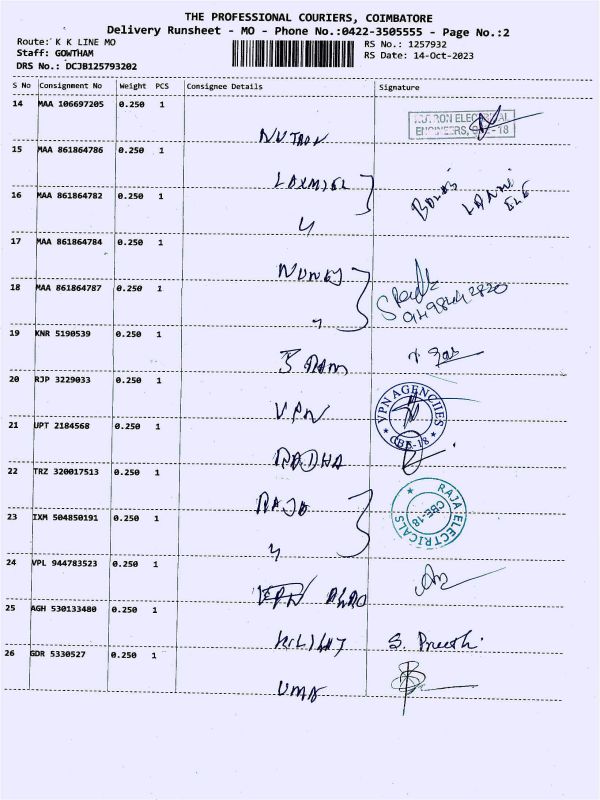 THE PROFESSIONAL COURIERS, COIMBATORE
Delivery Runsheet - MO - Phone No.:0422-3505555 - Page No.:2
Route: K K LINE MO
Staff: GOWTHAM
DRS No.: DCJB125793202
RS No.: 1257932
RS Date: 14-Oct-2023
S No Consignment No Weight PCS Consignee Details Signature
14 MAA 106697205 0.250 1
NUTRON ELECTRICAL
ENGINEERS, CBE-18
NUTRON
15 MAA 861864786 0.250 1
16 MAA 861864782 0.250 1
17 MAA 861864784 0.250 1
18 MAA 861864787 0.250 1
19 KNR 5190539 0.250 1
20 RJP 3229033 0.250 1
VPN
VPN AGENCIES
CBE-18
21 UPT 2184568 0.250 1
RADHA
22 TRZ 320017513 0.250 1
RAJA
RAJA ELECTRICALS
CBE-18
23 IXM 504850191 0.250 1
24 VPL 944783523 0.250 1
25 AGH 530133480 0.250 1
S. Preethi.
26 GDR 5330527 0.250 1
UMA